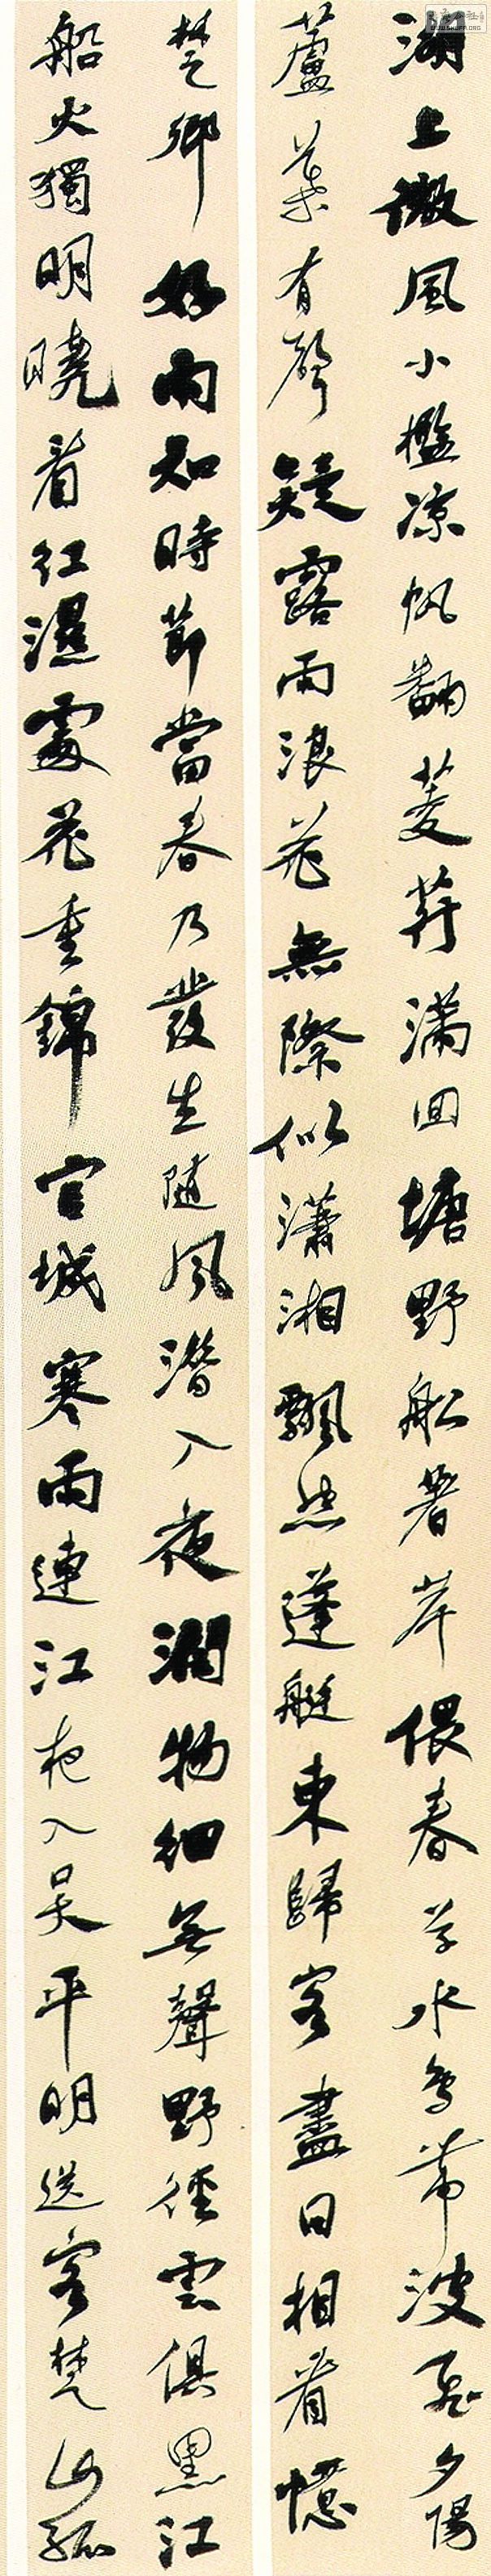 湖上微風小檻凉帆翻菱荇滿回塘野船著岸偎春草水鳥帶波飛夕陽
蘆葉有聲疑露雨浪花無際似瀟湘飄然蓬艇東歸客盡日相看憶
楚鄉好雨知時節當春乃發生隨風潛入夜潤物細無聲野徑雲俱黑江
船火獨明曉看紅濕處花重錦官城寒雨連江夜入吳平明送客楚山孤